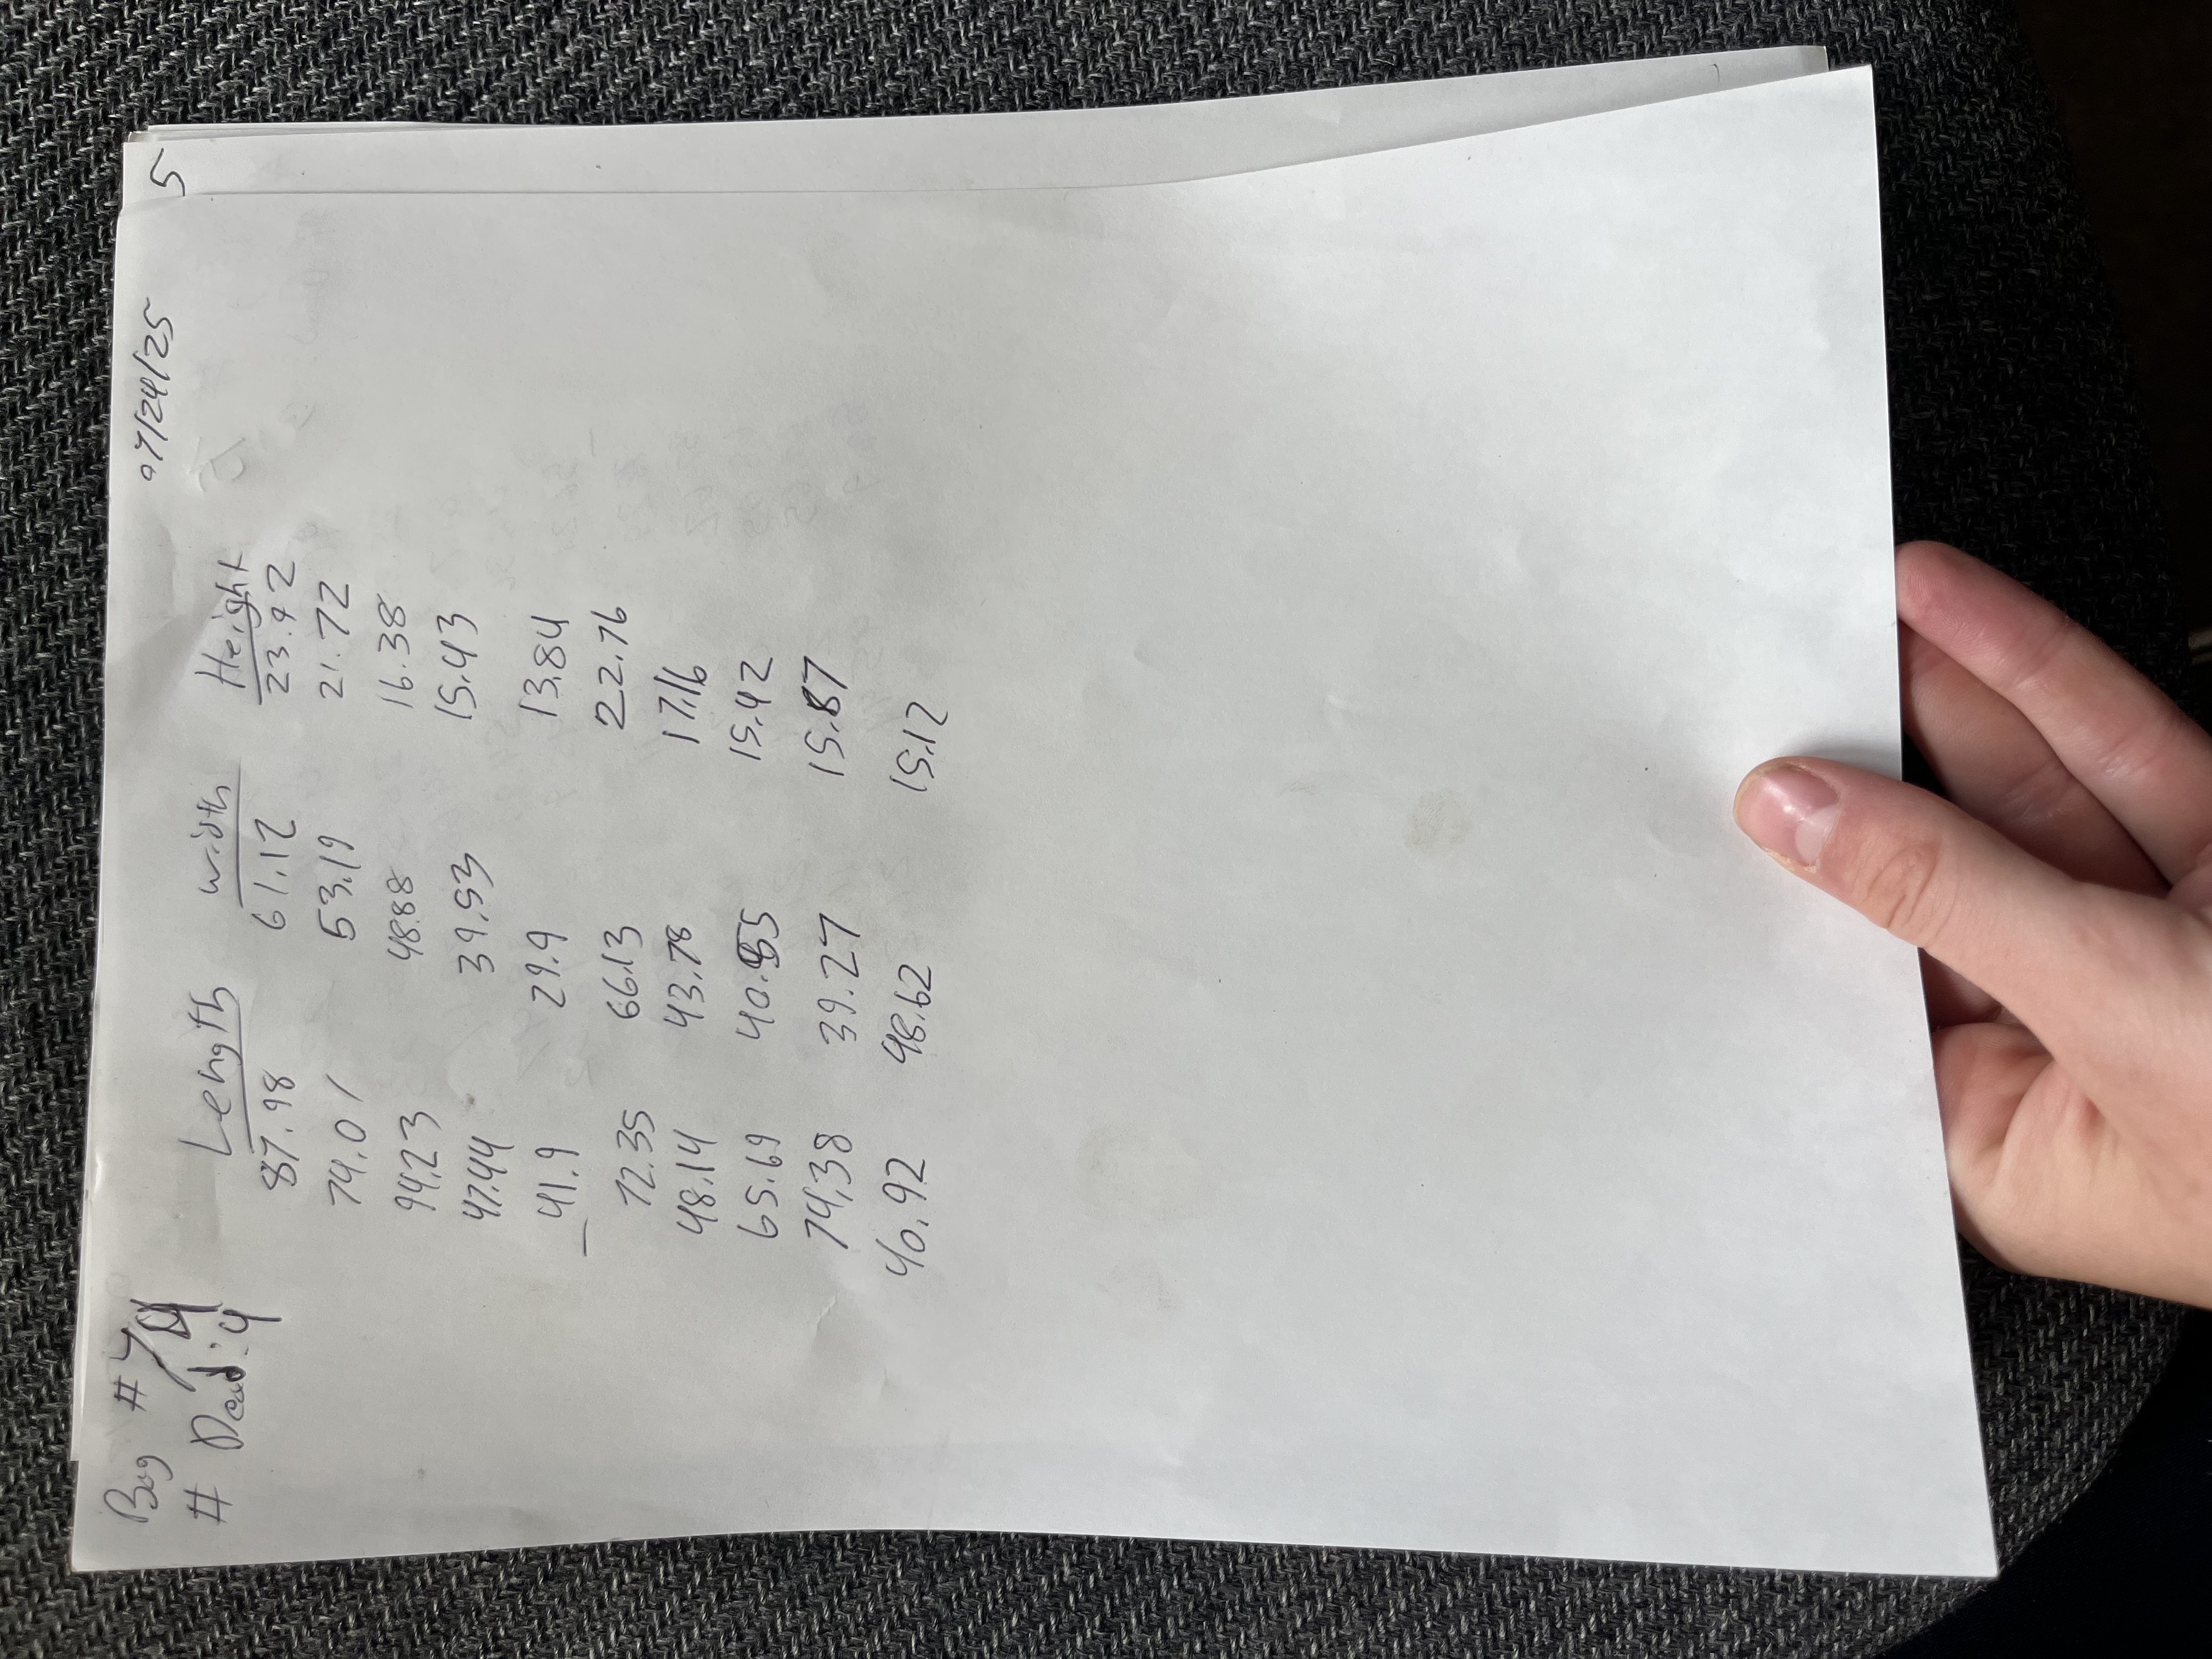 Bag #74 07/24/25 5
# Dead: 4 Length width Height
87.98 61.12 23.92
74.01 53.19 21.72
94.23 48.88 16.38
47.44 39.53 15.43
41.9 29.9 13.84
72.35 66.13 22.76
48.14 43.78 17.16
65.69 40.55 15.42
74.38 39.27 15.87
40.92 48.62 15.12